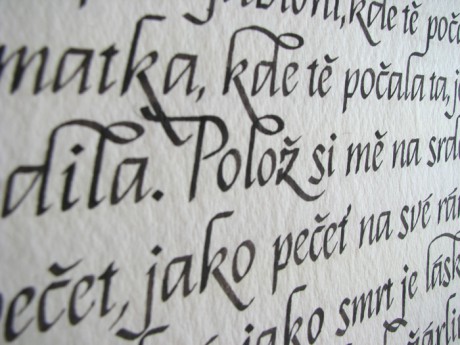 kde tě poča
matka, kde tě počala ta, j
dila. Polož si mě na srd
pečet, jako pečeť na své rá
jako smrt je lásk
žárli